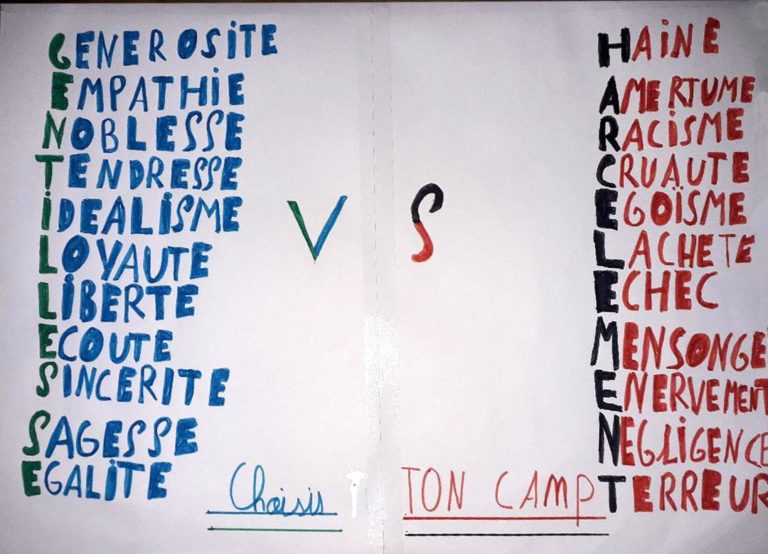 GENEROSITE
EMPATHIE
NOBLESSE
TENDRESSE
iDEALISME
LOYAUTE
LIBERTE
ECOUTE
SINCERITE
SAGESSE
EGALITE
VS
HAINE
AMERTUME
RACISME
CRUAUTE
EGOÏSME
LACHETE
ECHEC
MENSONGE
ENERVEMENT
NEGLIGENCE
TERREUR
Choisis TON CAMP